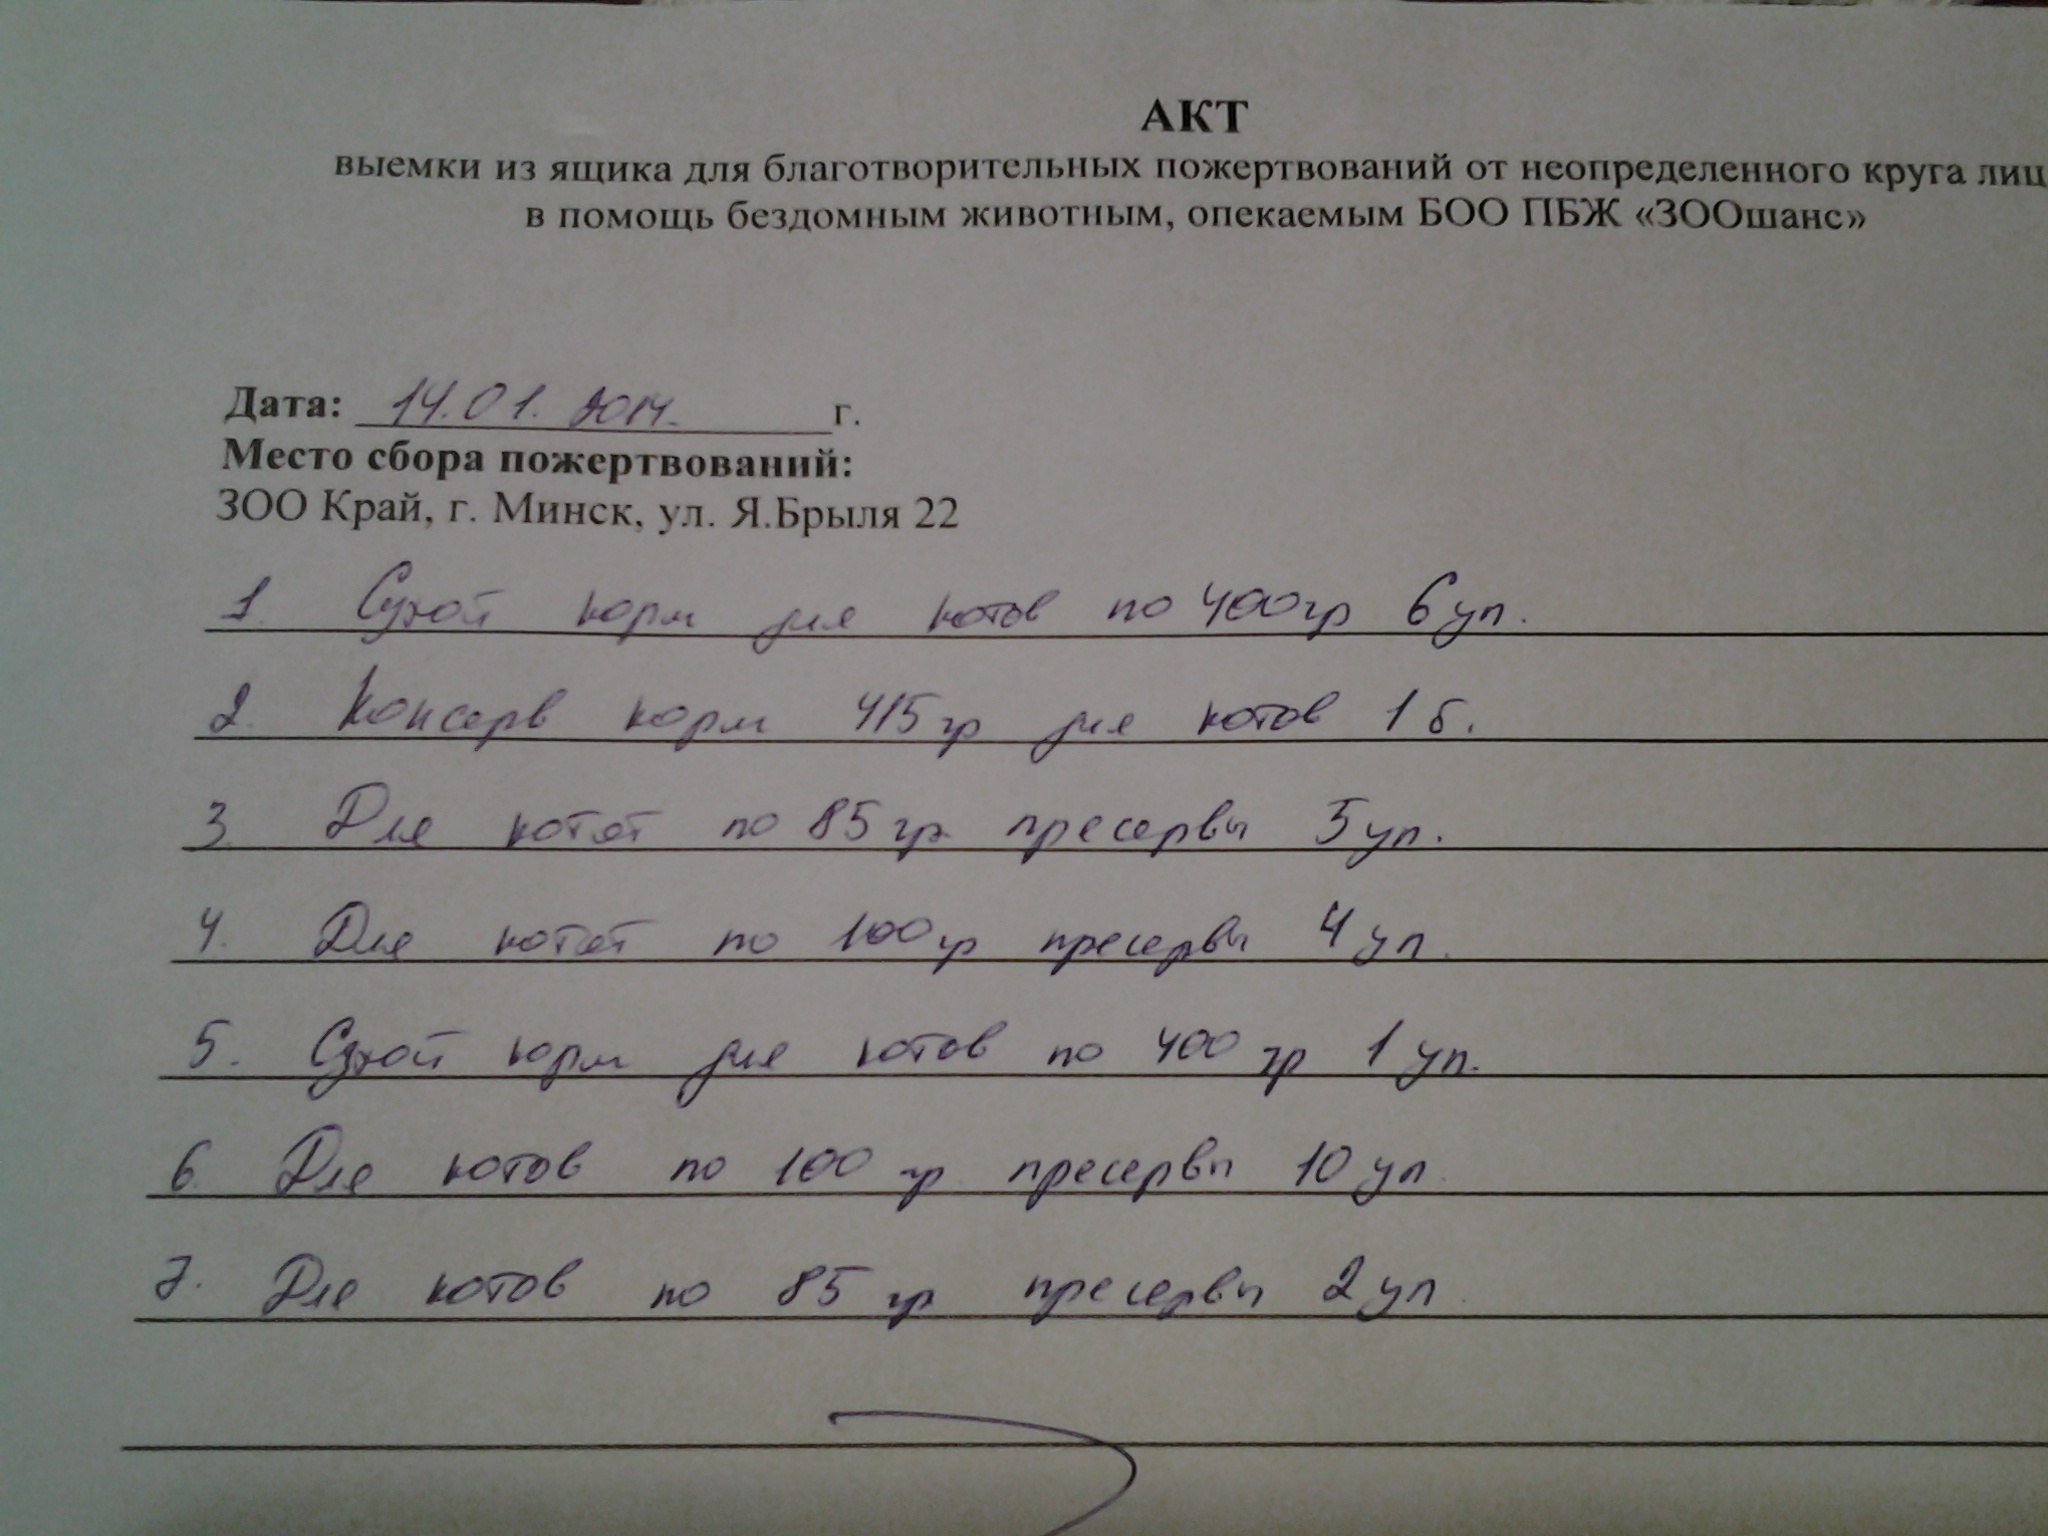 АКТ
выемки из ящика для благотворительных пожертвований от неопределенного круга лиц
в помощь бездомным животным, опекаемым БОО ПБЖ «ЗООшанс»
Дата: 14.01.2014. г.
Место сбора пожертвований:
ЗОО Край, г. Минск, ул. Я.Брыля 22
1. Сухой корм для котов по 400гр 6 уп.
2. Консерв корм 415 гр для котов 1 б.
3. Для котят по 85 гр пресервы 5 уп.
4. Для котят по 100 гр пресервы 4 уп.
5. Сухой корм для котов по 400 гр 1 уп.
6. Для котов по 100 гр пресервы 10 уп.
7. Для котов по 85 гр пресервы 2 уп.